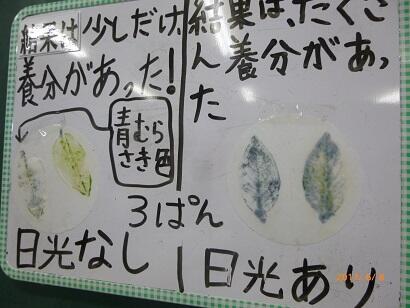 結果は少しだけ、
養分があった!
青むら
さき色
日光なし
3ぱん
結果は、たくさ
ん養分があっ
た
日光あり